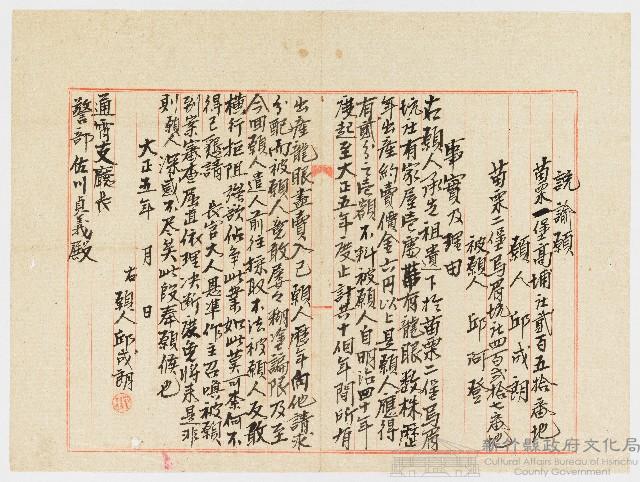 說諭願
苗栗一堡高埔社貳百五拾番地
願人 邱成朗
苗栗二堡烏眉坑社四百貳拾七番地
被願人 邱阿登
事實及理由
右願人承先祖遺下於苗栗二堡烏眉
坑社有家屋壱處帶有龍眼数株歷
年出產約賣價金六円以上是願人應得
有國分之壱額不料被願人自明治四十年
度起至大正五年度止計共十個年間所有
出產龍眼盡賣入己願人歷年向他請求
分配而被願人膽敢屢々糊塗論限及至
今回願人遣人前往採取不法被願人反敢
橫行拒阻強欲佔爭此業如此莫可奈何不
得已懇請 長官大人恩准作主召喚被願
到案審查屈直依理決斷免將來是非
則願人深感不尽矣此段奉願候也
大正五年 月 日
右 願人 邱成朗
通霄支廳長
警部 佐川貞義殿
新竹縣政府文化局
Cultural Affairs Bureau of Hsinchu
County Government